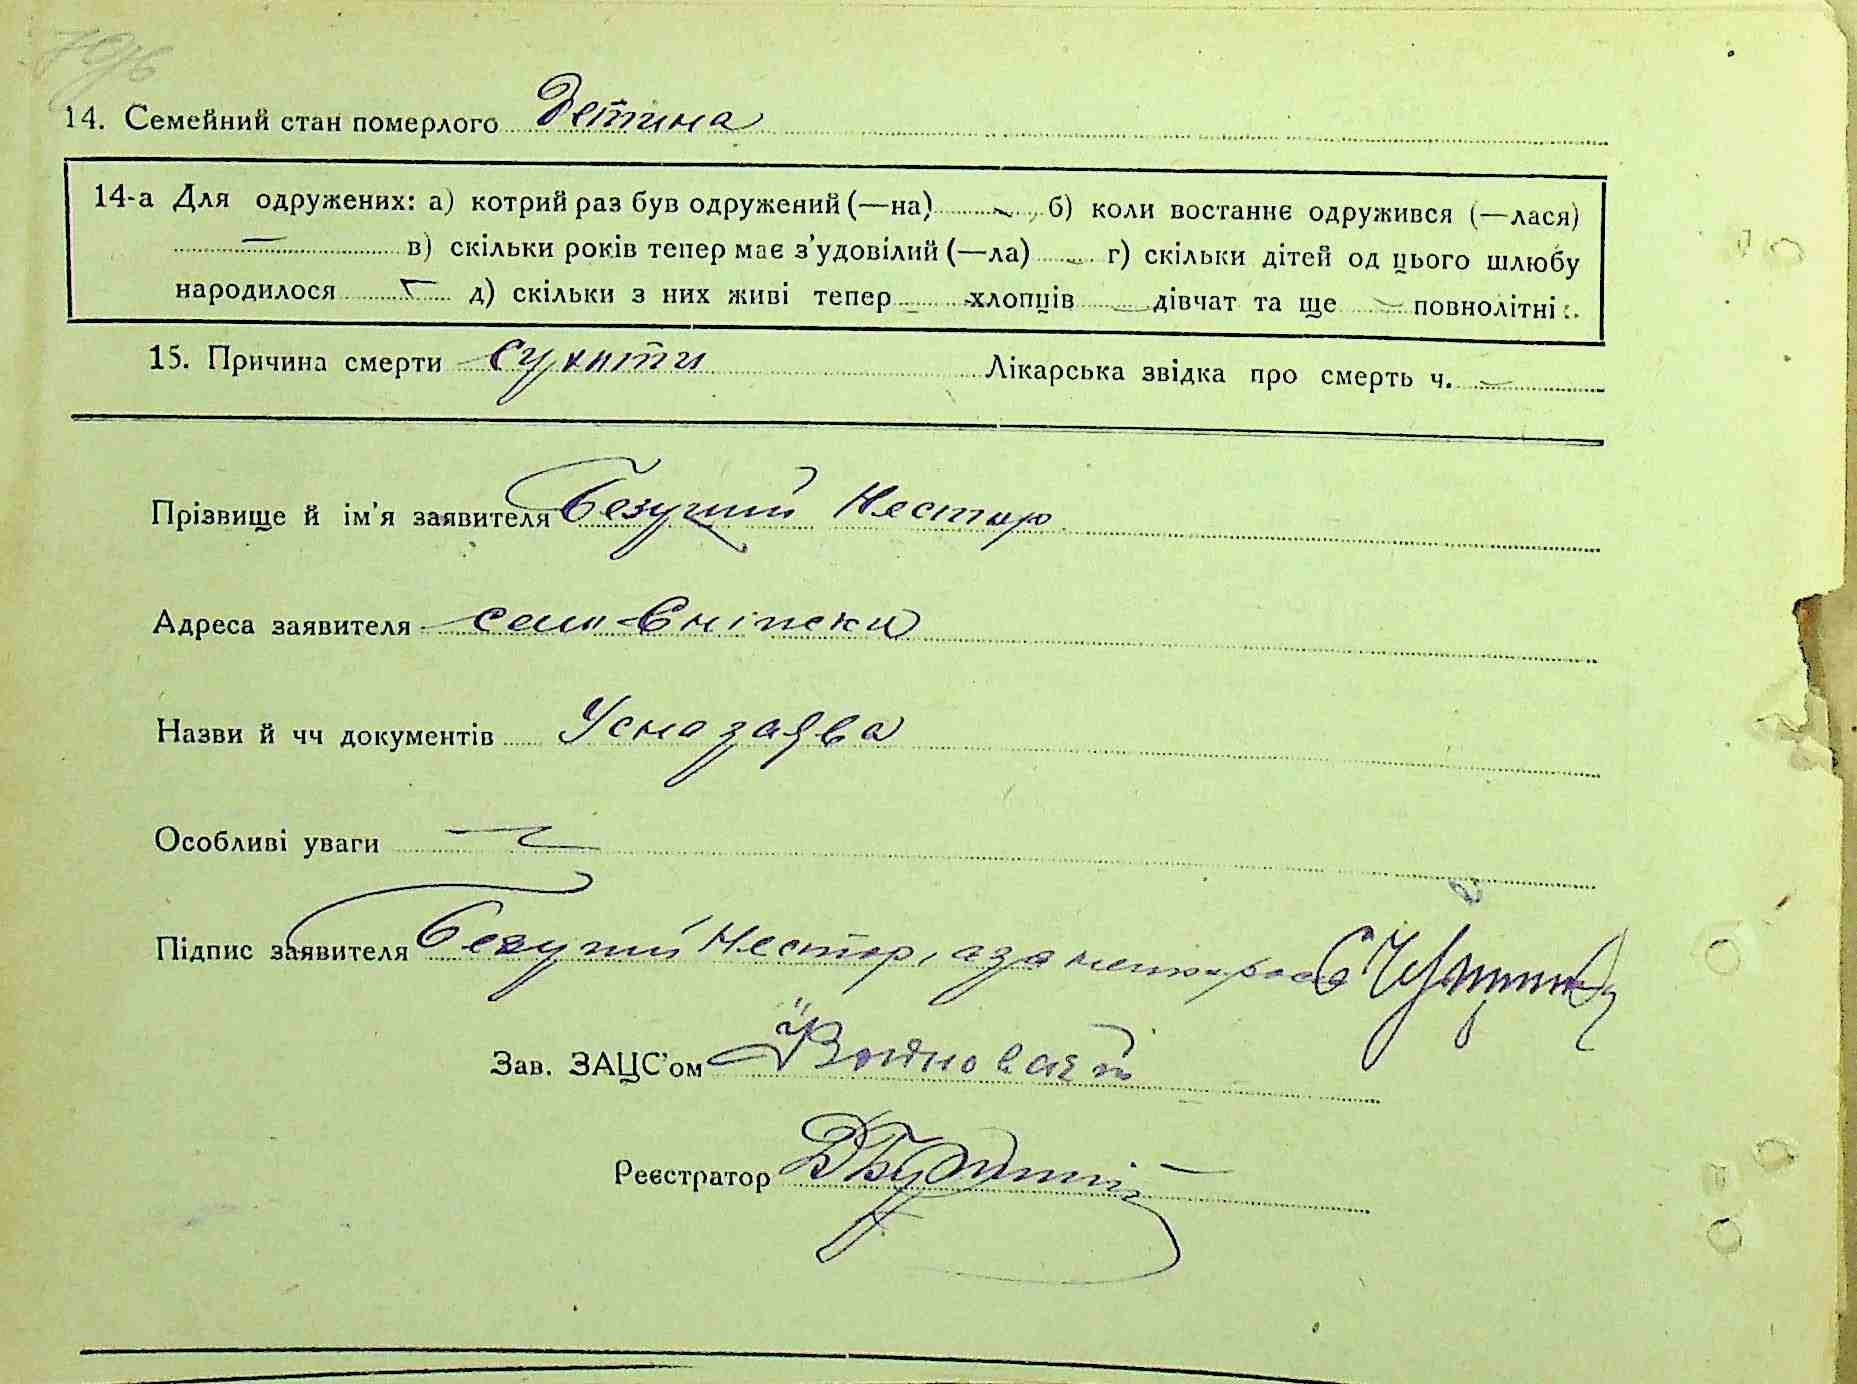 14. Семейний стан померлого Детина
14-а Для одружених: а) котрий раз був одружений (—на) б) коли востаннє одружився (—лася)
в) скільки років тепер має з’удовілий (—ла) г) скільки дітей од цього шлюбу
народилося д) скільки з них живі тепер хлопців дівчат та ще повнолітні
15. Причина смерти сухити Лікарська звідка про смерть ч.
Прізвище й ім’я заявителя Безуглий Нестор
Адреса заявителя село
Назви й чч документів Усна заява
Особливі уваги
Підпис заявителя Нестор, а за
Зав. ЗАЦС’ом
Реєстратор